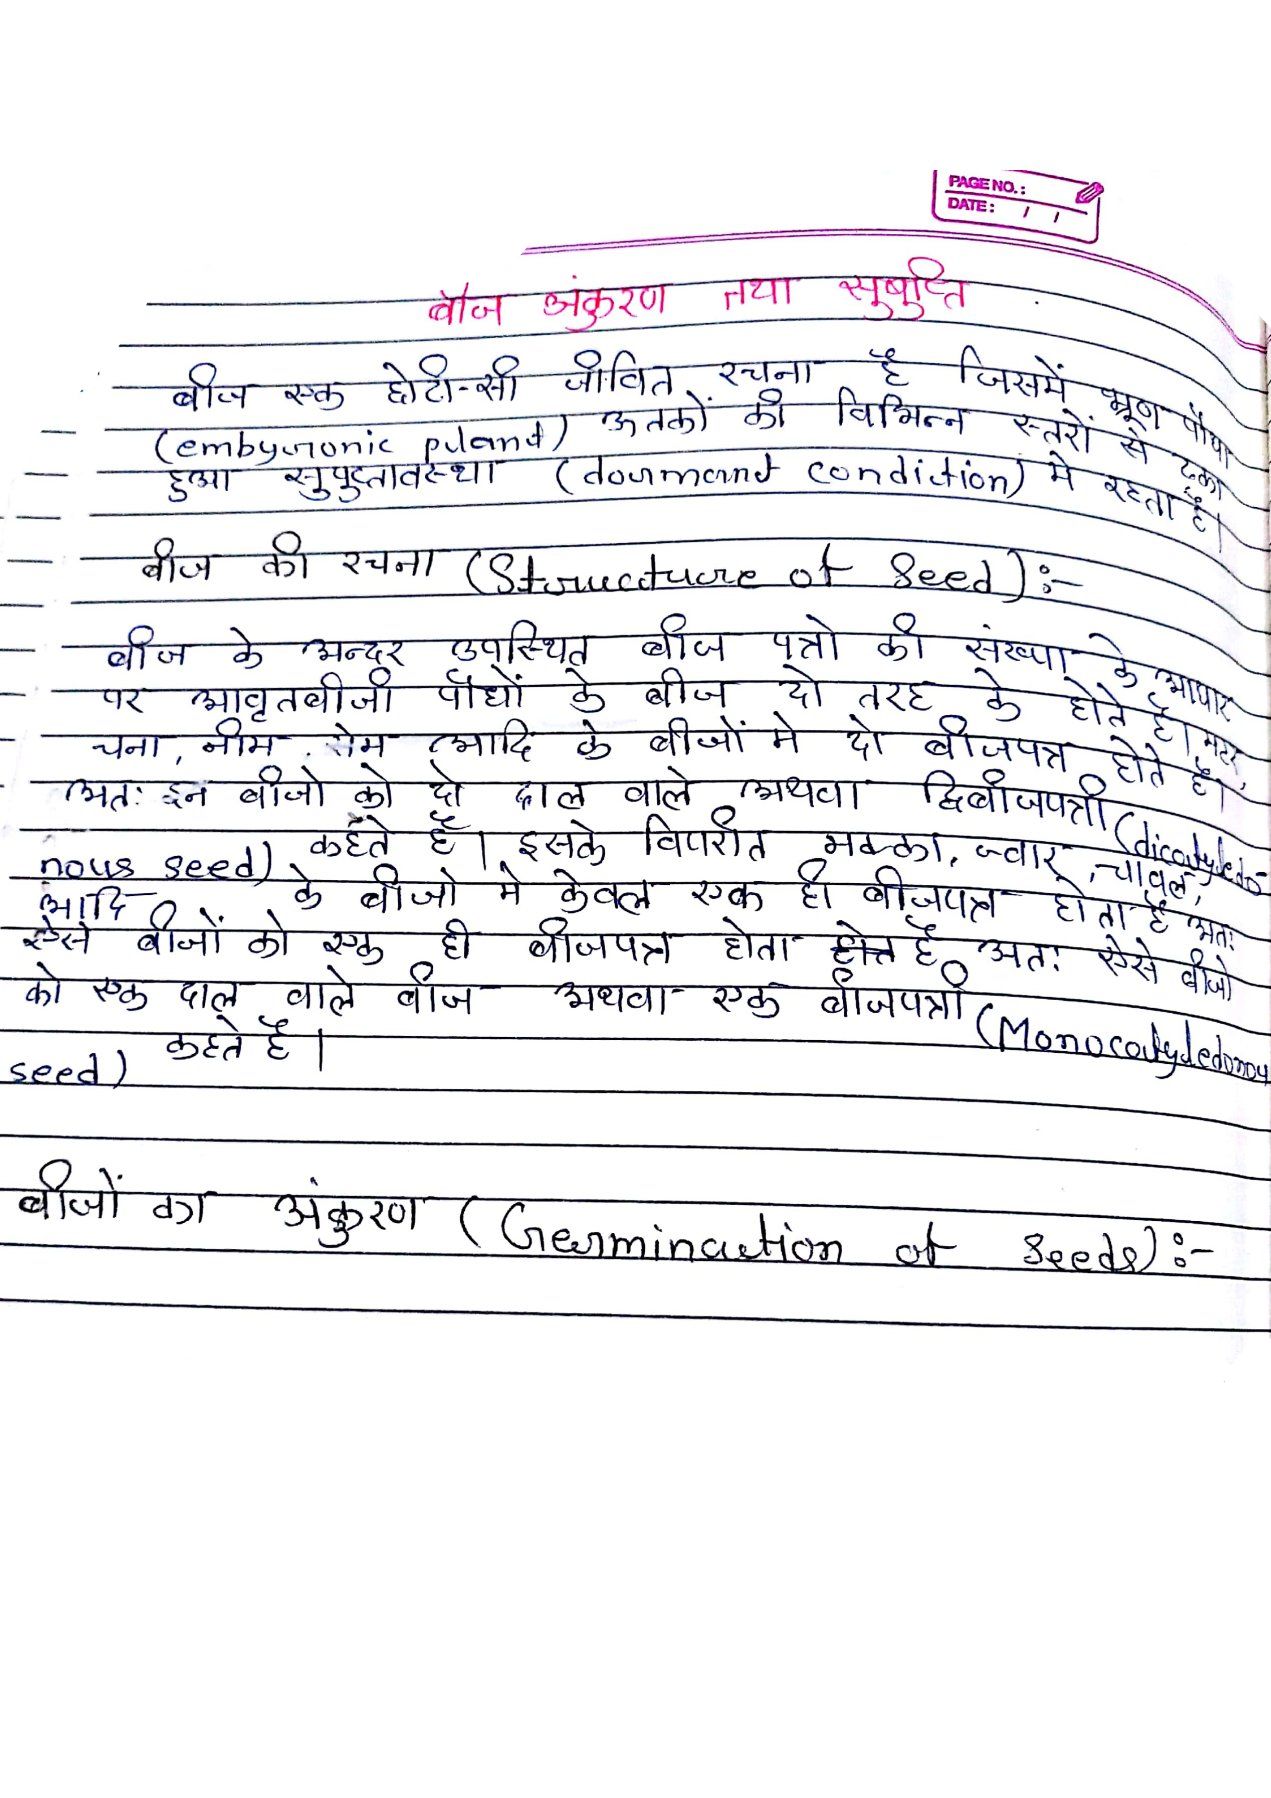 PAGE NO.:
DATE: / /
बीज अंकुरण तथा सुषुप्ति
बीज एक छोटी-सी जीवित रचना है जिसमें भ्रूण पौधा
(embyronic pland) ऊतकों की विभिन्न स्तरों से ढका
हुआ सुषुप्तावस्था (dormant condition) मे रहता है।
बीज की रचना (Structure of Seed):-
बीज के अन्दर उपस्थित बीज पत्रो की संख्या के आधार
पर आवृतबीजी पौधों के बीज दो तरह के होते है। मटर,
चना, नीम, सेम आदि के बीजों मे दो बीजपत्र होते है।
अतः इन बीजो को दो दाल वाले अथवा द्विबीजपत्री (dicotyledo-
nous seed) कहते है। इसके विपरीत मक्का, ज्वार, चावल,
आदि के बीजो मे केवल एक ही बीजपत्र होता है अतः
ऐसे बीजों को एक ही बीजपत्र होता होत है अतः ऐसे बीजो
को एक दाल वाले बीज अथवा एक बीजपत्री (Monocotyledonou
seed) कहते है।
बीजों का अंकुरण (Germination of Seeds):-